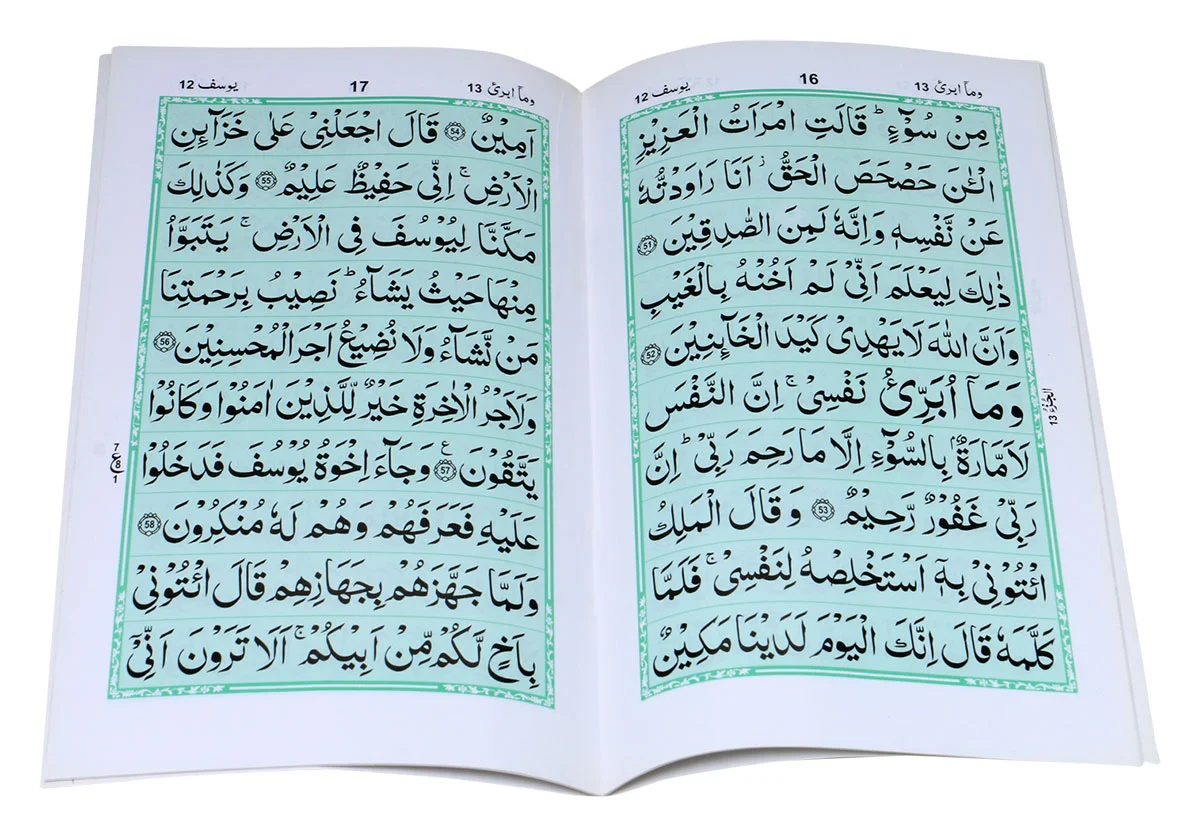 وما ابرئ 13
16
یوسف 12
مِنْ سُوْٓءٍ ؕ قَالَتِ امْرَاَتُ الْعَزِیْزِ
الْـٰٔنَ حَصْحَصَ الْحَقُّ ؗ اَنَا رَاوَدْتُّهٗ
عَنْ نَّفْسِهٖ وَاِنَّهٗ لَمِنَ الصّٰدِقِیْنَ 51
ذٰلِكَ لِیَعْلَمَ اَنِّیْ لَمْ اَخُنْهُ بِالْغَیْبِ
وَاَنَّ اللّٰهَ لَا یَهْدِیْ كَیْدَ الْخَآئِنِیْنَ 52
وَمَاۤ اُبَرِّئُ نَفْسِیْ ۚ اِنَّ النَّفْسَ
لَاَمَّارَةٌۢ بِالسُّوْٓءِ اِلَّا مَا رَحِمَ رَبِّیْ ؕ اِنَّ
رَبِّیْ غَفُوْرٌ رَّحِیْمٌ 53 وَقَالَ الْمَلِكُ
ائْتُوْنِیْ بِهٖۤ اَسْتَخْلِصْهُ لِنَفْسِیْ ۚ فَلَمَّا
كَلَّمَهٗ قَالَ اِنَّكَ الْیَوْمَ لَدَیْنَا مَكِیْنٌ
الجزء 13
وما ابرئ 13
17
یوسف 12
اَمِیْنٌ 54 قَالَ اجْعَلْنِیْ عَلٰی خَزَآئِنِ
الْاَرْضِ ۚ اِنِّیْ حَفِیْظٌ عَلِیْمٌ 55 وَكَذٰلِكَ
مَكَّنَّا لِیُوْسُفَ فِی الْاَرْضِ ۚ یَتَبَوَّاُ
مِنْهَا حَیْثُ یَشَآءُ ؕ نُصِیْبُ بِرَحْمَتِنَا
مَنْ نَّشَآءُ وَلَا نُضِیْعُ اَجْرَ الْمُحْسِنِیْنَ 56
وَلَاَجْرُ الْاٰخِرَةِ خَیْرٌ لِّلَّذِیْنَ اٰمَنُوْا وَكَانُوْا
یَتَّقُوْنَ 57 ع وَجَآءَ اِخْوَةُ یُوْسُفَ فَدَخَلُوْا
عَلَیْهِ فَعَرَفَهُمْ وَهُمْ لَهٗ مُنْكِرُوْنَ 58
وَلَمَّا جَهَّزَهُمْ بِجَهَازِهِمْ قَالَ ائْتُوْنِیْ
بِاَخٍ لَّكُمْ مِّنْ اَبِیْكُمْ ۚ اَلَا تَرَوْنَ اَنِّیْۤ
7
ع 8
1